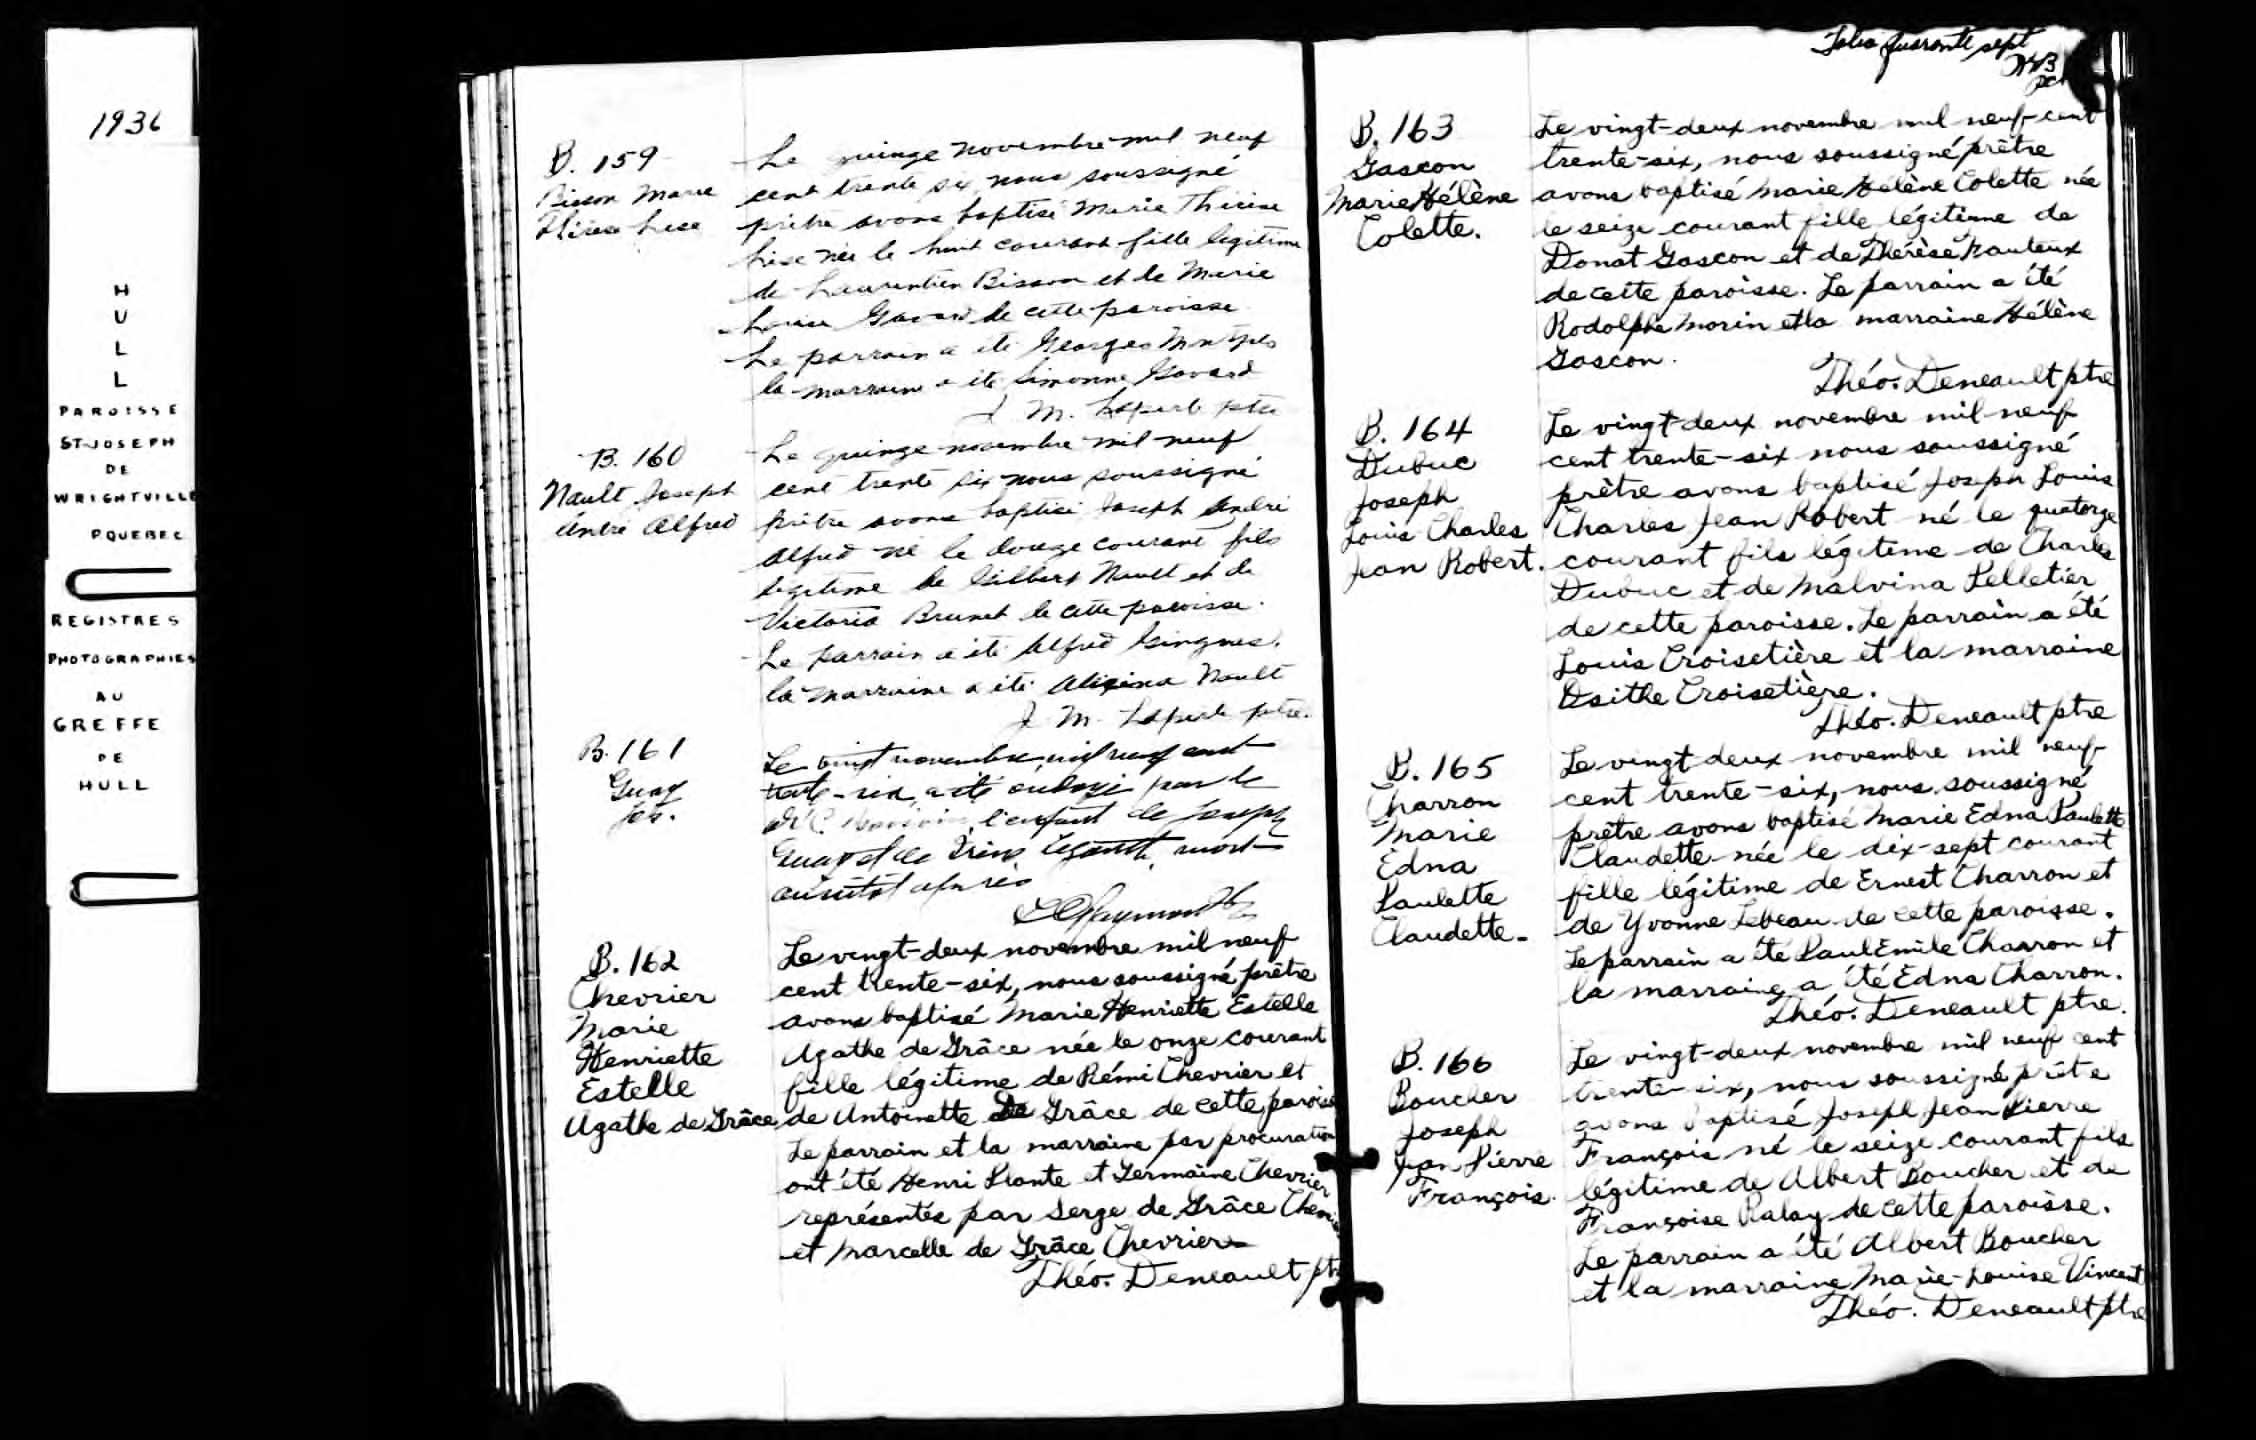 1936
H
U
L
L
PAROISSE
ST-JOSEPH
DE
WRIGHTVILLE
P QUEBEC
REGISTRES
PHOTOGRAPHIES
AU
GREFFE
DE
HULL
B. 159
Bisson Marie
Thérèse Lise
Le quinze novembre mil neuf
cent trente six nous soussigné
prêtre avons baptisé Marie Thérèse
Lise née le huit courant fille légitime
de Laurentien Bisson et de Marie
Louise Gavard de cette paroisse
Le parrain a été Georges
la marraine a été Simonne Gavard
J. M. ptre
B. 160
Nault Joseph
André Alfred
Le quinze novembre mil neuf
cent trente six nous soussigné
prêtre avons baptisé Joseph André
Alfred né le douze courant fils
légitime de Gilbert Nault et de
Victoria Brunet de cette paroisse.
Le parrain a été Alfred Gingras.
la marraine a été Nault
J. M. ptre.
B. 161
Guay
Jos.
Le vingt novembre mil neuf cent
trente-six a été ondoyé par le
Dr l'enfant de Joseph
Guay et de Legault, mort
aussitôt après
B. 162
Chevrier
Marie
Henriette
Estelle
Agathe de Grâce
Le vingt-deux novembre mil neuf
cent trente-six, nous soussigné prêtre
avons baptisé Marie Henriette Estelle
Agathe de Grâce née le onze courant
fille légitime de Rémi Chevrier et
de Antoinette De Grâce de cette paroisse
Le parrain et la marraine par procuration
ont été Henri Plante et Germaine Chevrier
représentés par Serge de Grâce Chevrier
et Marcelle de Grâce Chevrier
Théo. Deneault ptre
Folio quarante sept
B. 163
Gascon
Marie Hélène
Colette.
Le vingt-deux novembre mil neuf-cent
trente-six, nous soussigné prêtre
avons baptisé Marie Hélène Colette née
le seize courant fille légitime de
Donat Gascon et de Thérèse Nauteux
de cette paroisse. Le parrain a été
Rodolphe Morin et la marraine Hélène
Gascon.
Théo. Deneault ptre
B. 164
Dubuc
Joseph
Louis Charles
Jean Robert.
Le vingt-deux novembre mil neuf
cent trente-six nous soussigné
prêtre avons baptisé Joseph Louis
Charles Jean Robert né le quatorze
courant fils légitime de Charles
Dubuc et de Malvina Pelletier
de cette paroisse. Le parrain a été
Louis Croisetière et la marraine
Osithe Croisetière.
Théo. Deneault ptre
B. 165
Charron
Marie
Edna
Paulette
Claudette.
Le vingt-deux novembre mil neuf
cent trente-six, nous soussigné
prêtre avons baptisé Marie Edna Paulette
Claudette née le dix-sept courant
fille légitime de Ernest Charron et
de Yvonne Lebeau de cette paroisse.
Le parrain a été Paul Emile Charron et
la marraine a été Edna Charron.
Théo. Deneault ptre.
B. 166
Boucher
Joseph
Jean Pierre
François.
Le vingt-deux novembre mil neuf cent
trente-six, nous soussigné prêtre
avons baptisé Joseph Jean Pierre
François né le seize courant fils
légitime de Albert Boucher et de
Françoise Ralay de cette paroisse.
Le parrain a été Albert Boucher
et la marraine Marie-Louise Vincent
Théo. Deneault ptre